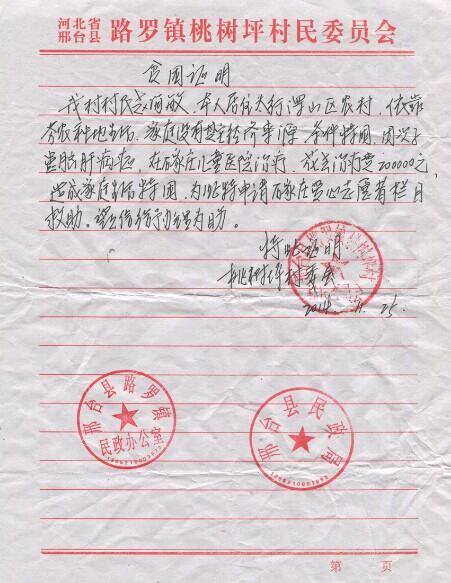 河北省邢台县 路罗镇桃树坪村民委员会
贫困证明
我村村民 本人居住太行深山区农村，依靠
务农种地生活，家庭没有其它经济来源，条件特困，因儿子
患肝病症，在石家庄儿童医院治疗，治疗费200000元，
造成家庭生活特困，为此特申请石家庄爱心 栏目
救助。望上级给予办理为助。
特此证明
桃树坪村委会
2014. 11. 25.
邢台县路罗镇
民政办公室
邢台县民政局
第 页